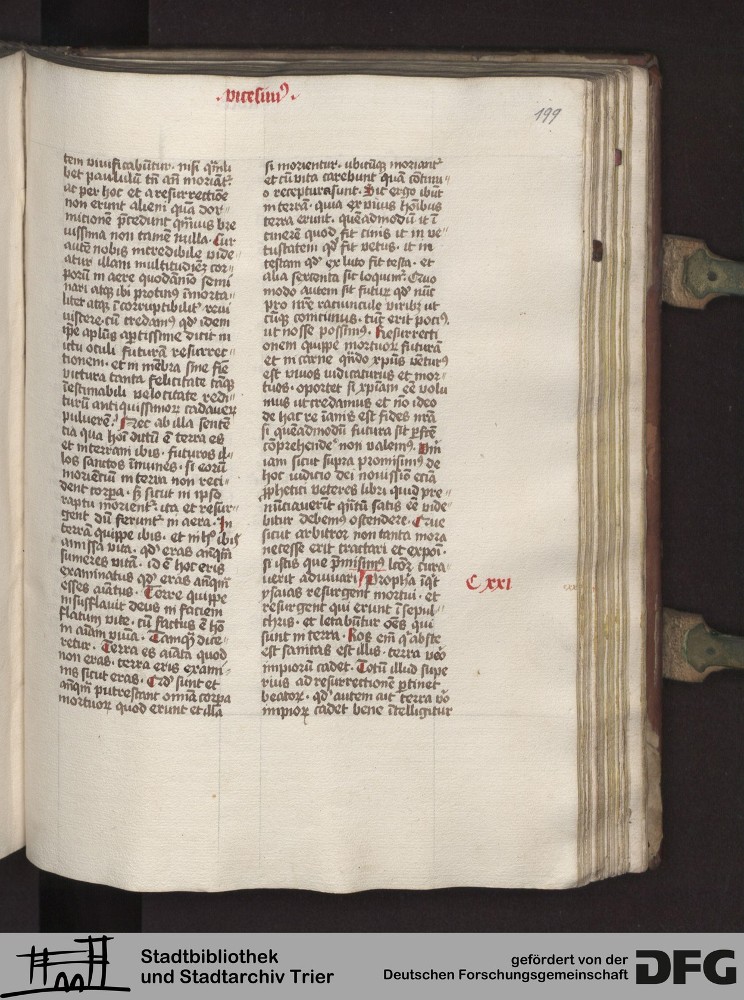 .vicesim⁹.
199
tem viuificabūtur. nisi qͣmli
bet paululū tn̄ an̄ moriāt᷑.
at per hoc et a resurrectiōe
non erunt alieni quā dor⸗
mitione p̄cedunt qͣmuis bre
uissima non tamē nulla. Cur
autē nobis incredibile vide⸗
atur illam multitudinēz cor⸗
porū in aere quodāmō semi
nari atqꝫ ibi protinꝰ īmorta⸗
liter atqꝫ īcorruptibilit᷑ reui
uiscere. cū credamꝰ qd̓ idem
ip̄e apl̄us aꝑtissime dicit in
ictu oculi futurā resurrec⸗
tionem. et in mēbra sine fine
victura tanta felicitate tāqꝫ
īestimabili velocitate redi⸗
turū antiquissimoꝝ cadaueꝝ
puluerē. Nec ab illa sentē
cia qua hōi dictū ē terra es
et in terram ibis. futuros il⸗
los sanctos īmunes. si eorū
morientiū in terrā non reci⸗
dent corꝑa. sꝫ sicut in ipso
raptu morient᷑. ita et resur⸗
gent dū ferunt᷑ in aera. In
terrā quippe ibis. et ī hoc ibis
amissa vita. qd̓ eras anteqͣm
sumeres vitā. id ē hoc eris
examinatus qd̓ eras anteqͣm
esses aīatus. Terre quippe
insufflauit deus in faciem
flatum vite. cū factus ē hō
in aīam viuā. Tamqͣ dice⸗
retur. Terra es aīata quod
non eras. terra eris exami⸗
nis sicut eras. Qd̓ sunt et
anteqͣm putrescant omīa corꝑa
mortuoꝝ quod erunt et illa
si morientur. vbicūqꝫ moriant᷑
et cū vita carebunt quā cōtinu⸗
o recepturasunt. Sic ergo ibūt
in terrā. quia ex viuis hōībus
terra erunt. queādmodū it ī
cinerē quod fit cinis it in ve⸗
tustatem qd̓ fit vetus. it in
testam qd̓ ex luto fit testa. et
alia sexcenta sic loquimr̄. Quo
modo autem sit futurū qd̓ nūc
pro nr̄e raciuncule viribꝫ ut
cūqꝫ conicimus. tūc erit pociꝰ.
ut nosse possimꝰ. Resurrecti
onem quippe mortuoꝝ futurā
et in carne qn̄do xp̄us vēturꝰ
est viuos iudicaturus et mor⸗
tuos. oportet si xp̄iani ēē volu
mus ut credamus et nō ideo
de hac re inanis est fides nr̄a
si queādmodū futura sit ꝑfc̄e
cōprehende᷑ non valemꝰ. Vm̄
iam sicut supra promisimꝰ de
hoc iudicio dei nouissīo eciā
ꝓphetici veteres libri quid pre⸗
nūciauerīt qn̄tū satis ēē vide⸗
bitur debemꝰ ostendere. Que
sicut arbitror non tanta mora
necesse erit tractari et expoī.
si istis que p̄misimꝰ lector cura⸗
uerit adiuuari. Propha īq̇t
ysaias resurgent mortui. et
resurgent qui erunt ī sepul⸗
chris. et letabūtur oēs qui
sunt in terra. Ros em̄ qͥ abs te
est sanitas est illis. terra vͦo
impiorū cadet. Totū illud supe
rius ad resurrectionē ꝑtinet
beatoꝝ. qd̓ autem ait terra vͦo
impioꝝ cadet bene ītelligitur
C xxi
Stadtbibliothek
und Stadtarchiv Trier
gefördert von der
Deutschen Forschungsgemeinschaft
DFG